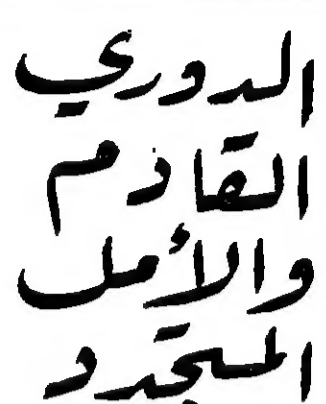 الدوري
القادم
والأمل
المتجدد